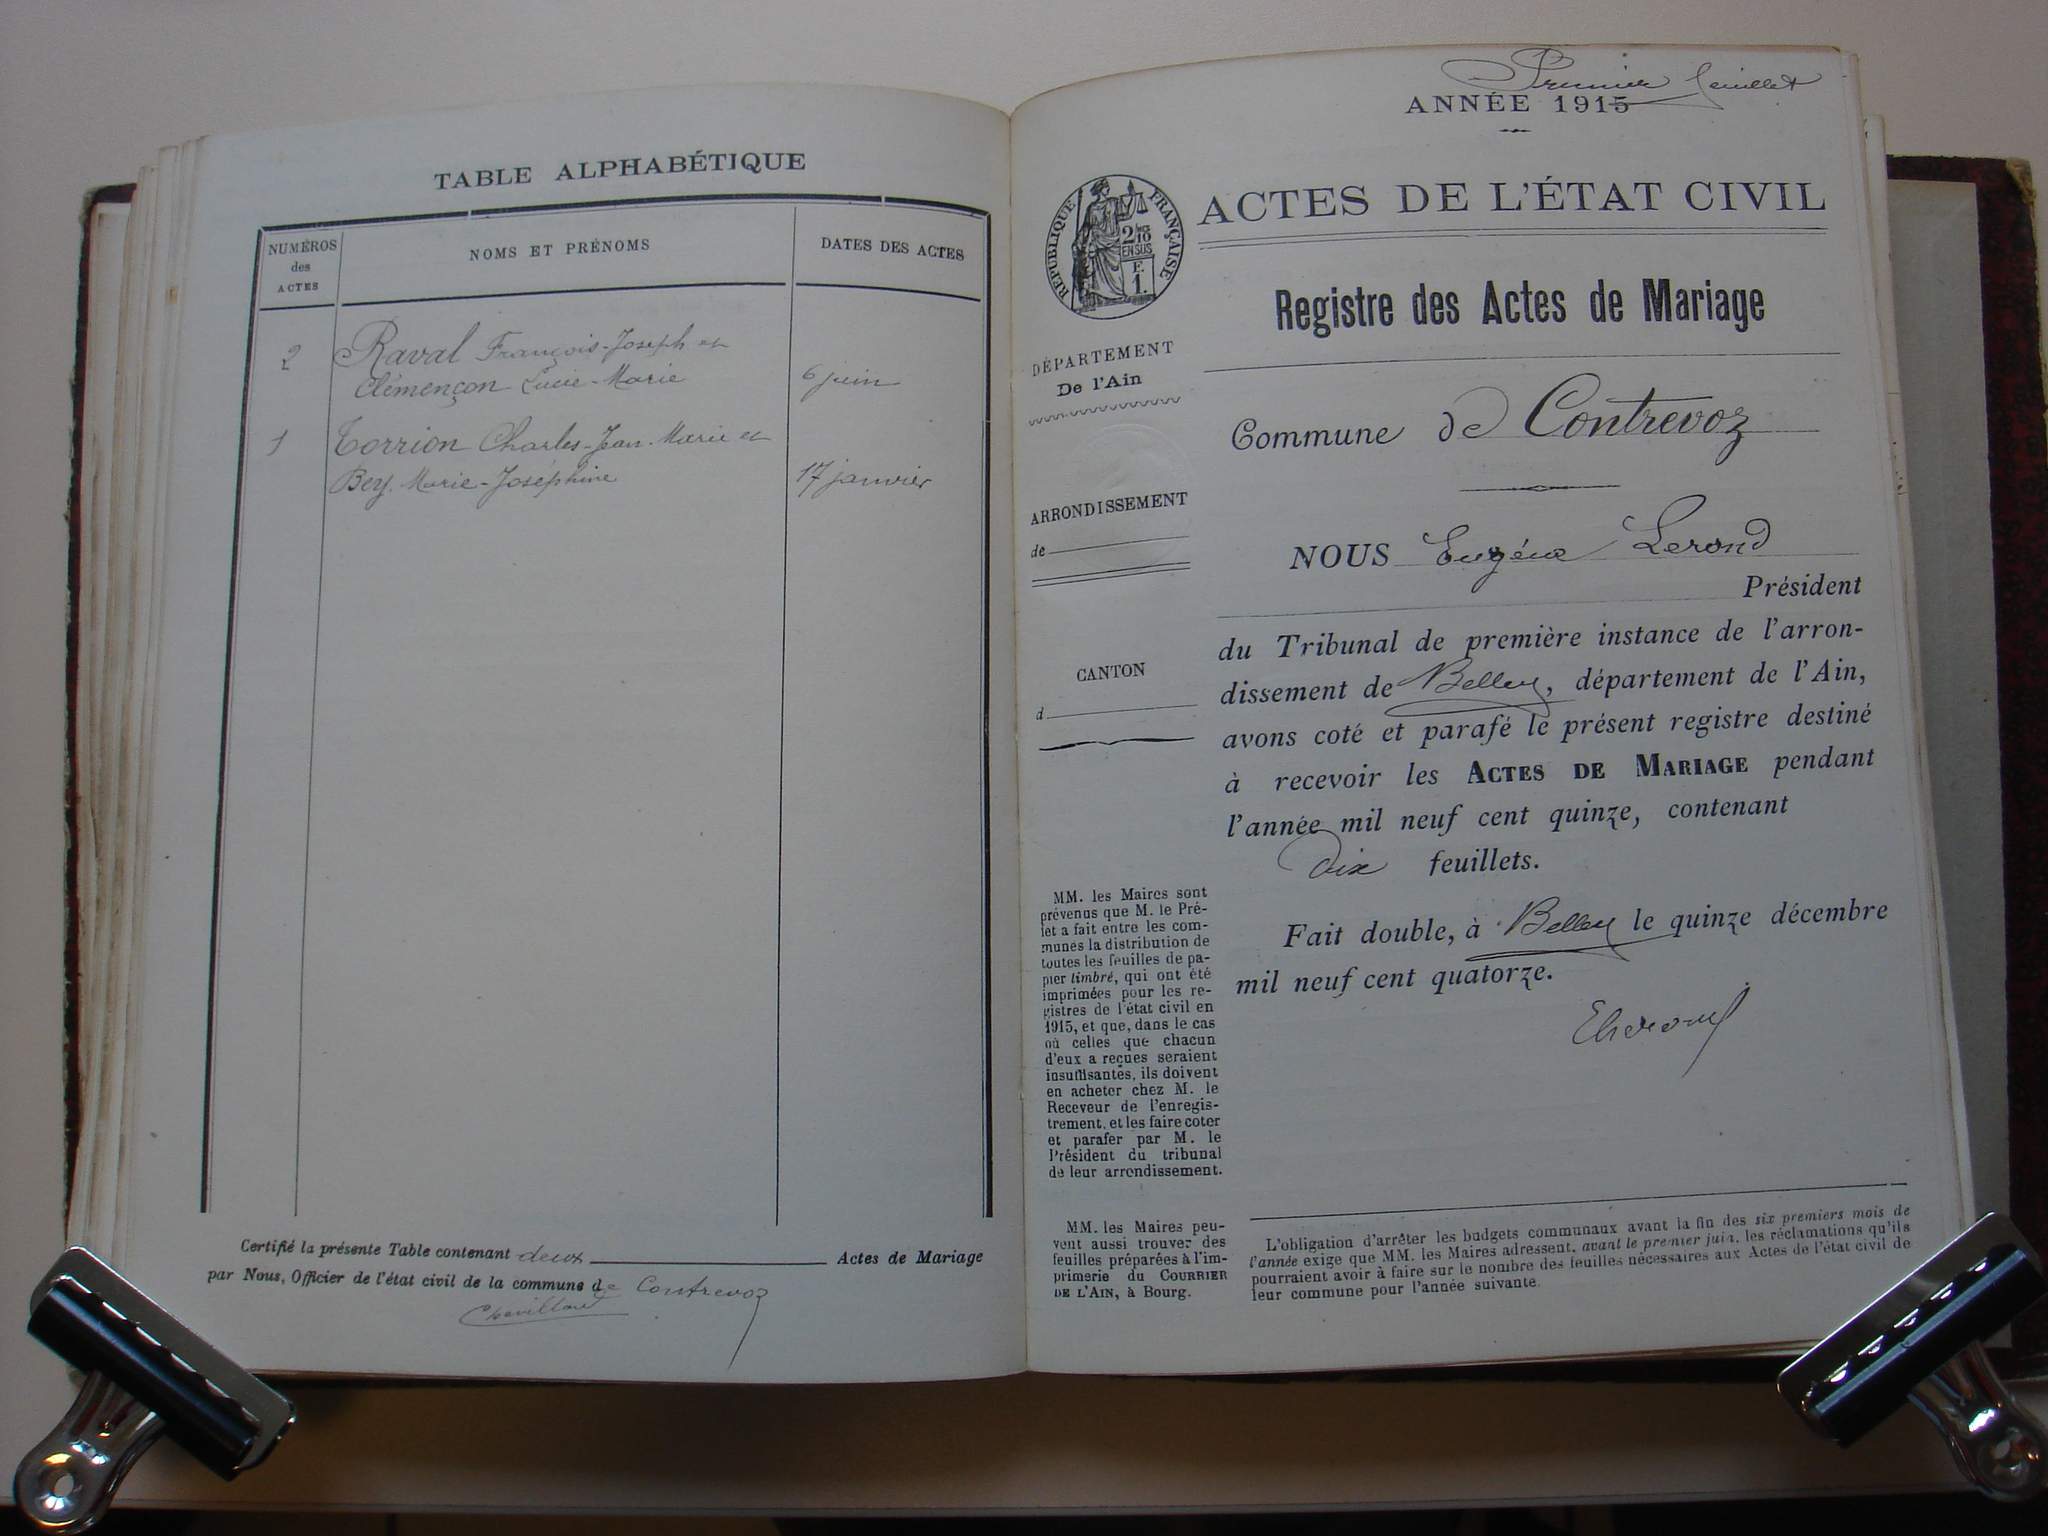 TABLE ALPHABÉTIQUE
NUMÉROS
des
ACTES
NOMS ET PRÉNOMS
DATES DES ACTES
2
Raval François-Joseph et
Clémençon Lucie-Marie
6 juin
1
Torrion Charles-Jean-Marie et
Bey Marie-Joséphine
17 janvier
Certifié la présente Table contenant deux Actes de Mariage
par Nous, Officier de l'état civil de la commune de Contrevoz
Premier feuillet
ANNÉE 1915
RÉPUBLIQUE FRANÇAISE
2/10
EN SUS
F.
1.
ACTES DE L'ÉTAT CIVIL
Registre des Actes de Mariage
DÉPARTEMENT
De l'Ain
ARRONDISSEMENT
de
CANTON
d
MM. les Maires sont
prévenus que M. le Pré-
fet a fait entre les com-
munes la distribution de
toutes les feuilles de pa-
pier timbré, qui ont été
imprimées pour les re-
gistres de l'état civil en
1915, et que, dans le cas
où celles que chacun
d'eux a reçues seraient
insuffisantes, ils doivent
en acheter chez M. le
Receveur de l'enregis-
trement, et les faire coter
et parafer par M. le
Président du tribunal
de leur arrondissement.
MM. les Maires peu-
vent aussi trouver des
feuilles préparées à l'im-
primerie du COURRIER
DE L'AIN, à Bourg.
Commune de Contrevoz
NOUS Eugéne Lerond
Président
du Tribunal de première instance de l'arron-
dissement de Belley, département de l'Ain,
avons coté et parafé le présent registre destiné
à recevoir les ACTES DE MARIAGE pendant
l'année mil neuf cent quinze, contenant
Dix feuillets.
Fait double, à Belley le quinze décembre
mil neuf cent quatorze.
L'obligation d'arrêter les budgets communaux avant la fin des six premiers mois de
l'année exige que MM. les Maires adressent, avant le premier juin, les réclamations qu'ils
pourraient avoir à faire sur le nombre des feuilles nécessaires aux Actes de l'état civil de
leur commune pour l'année suivante.